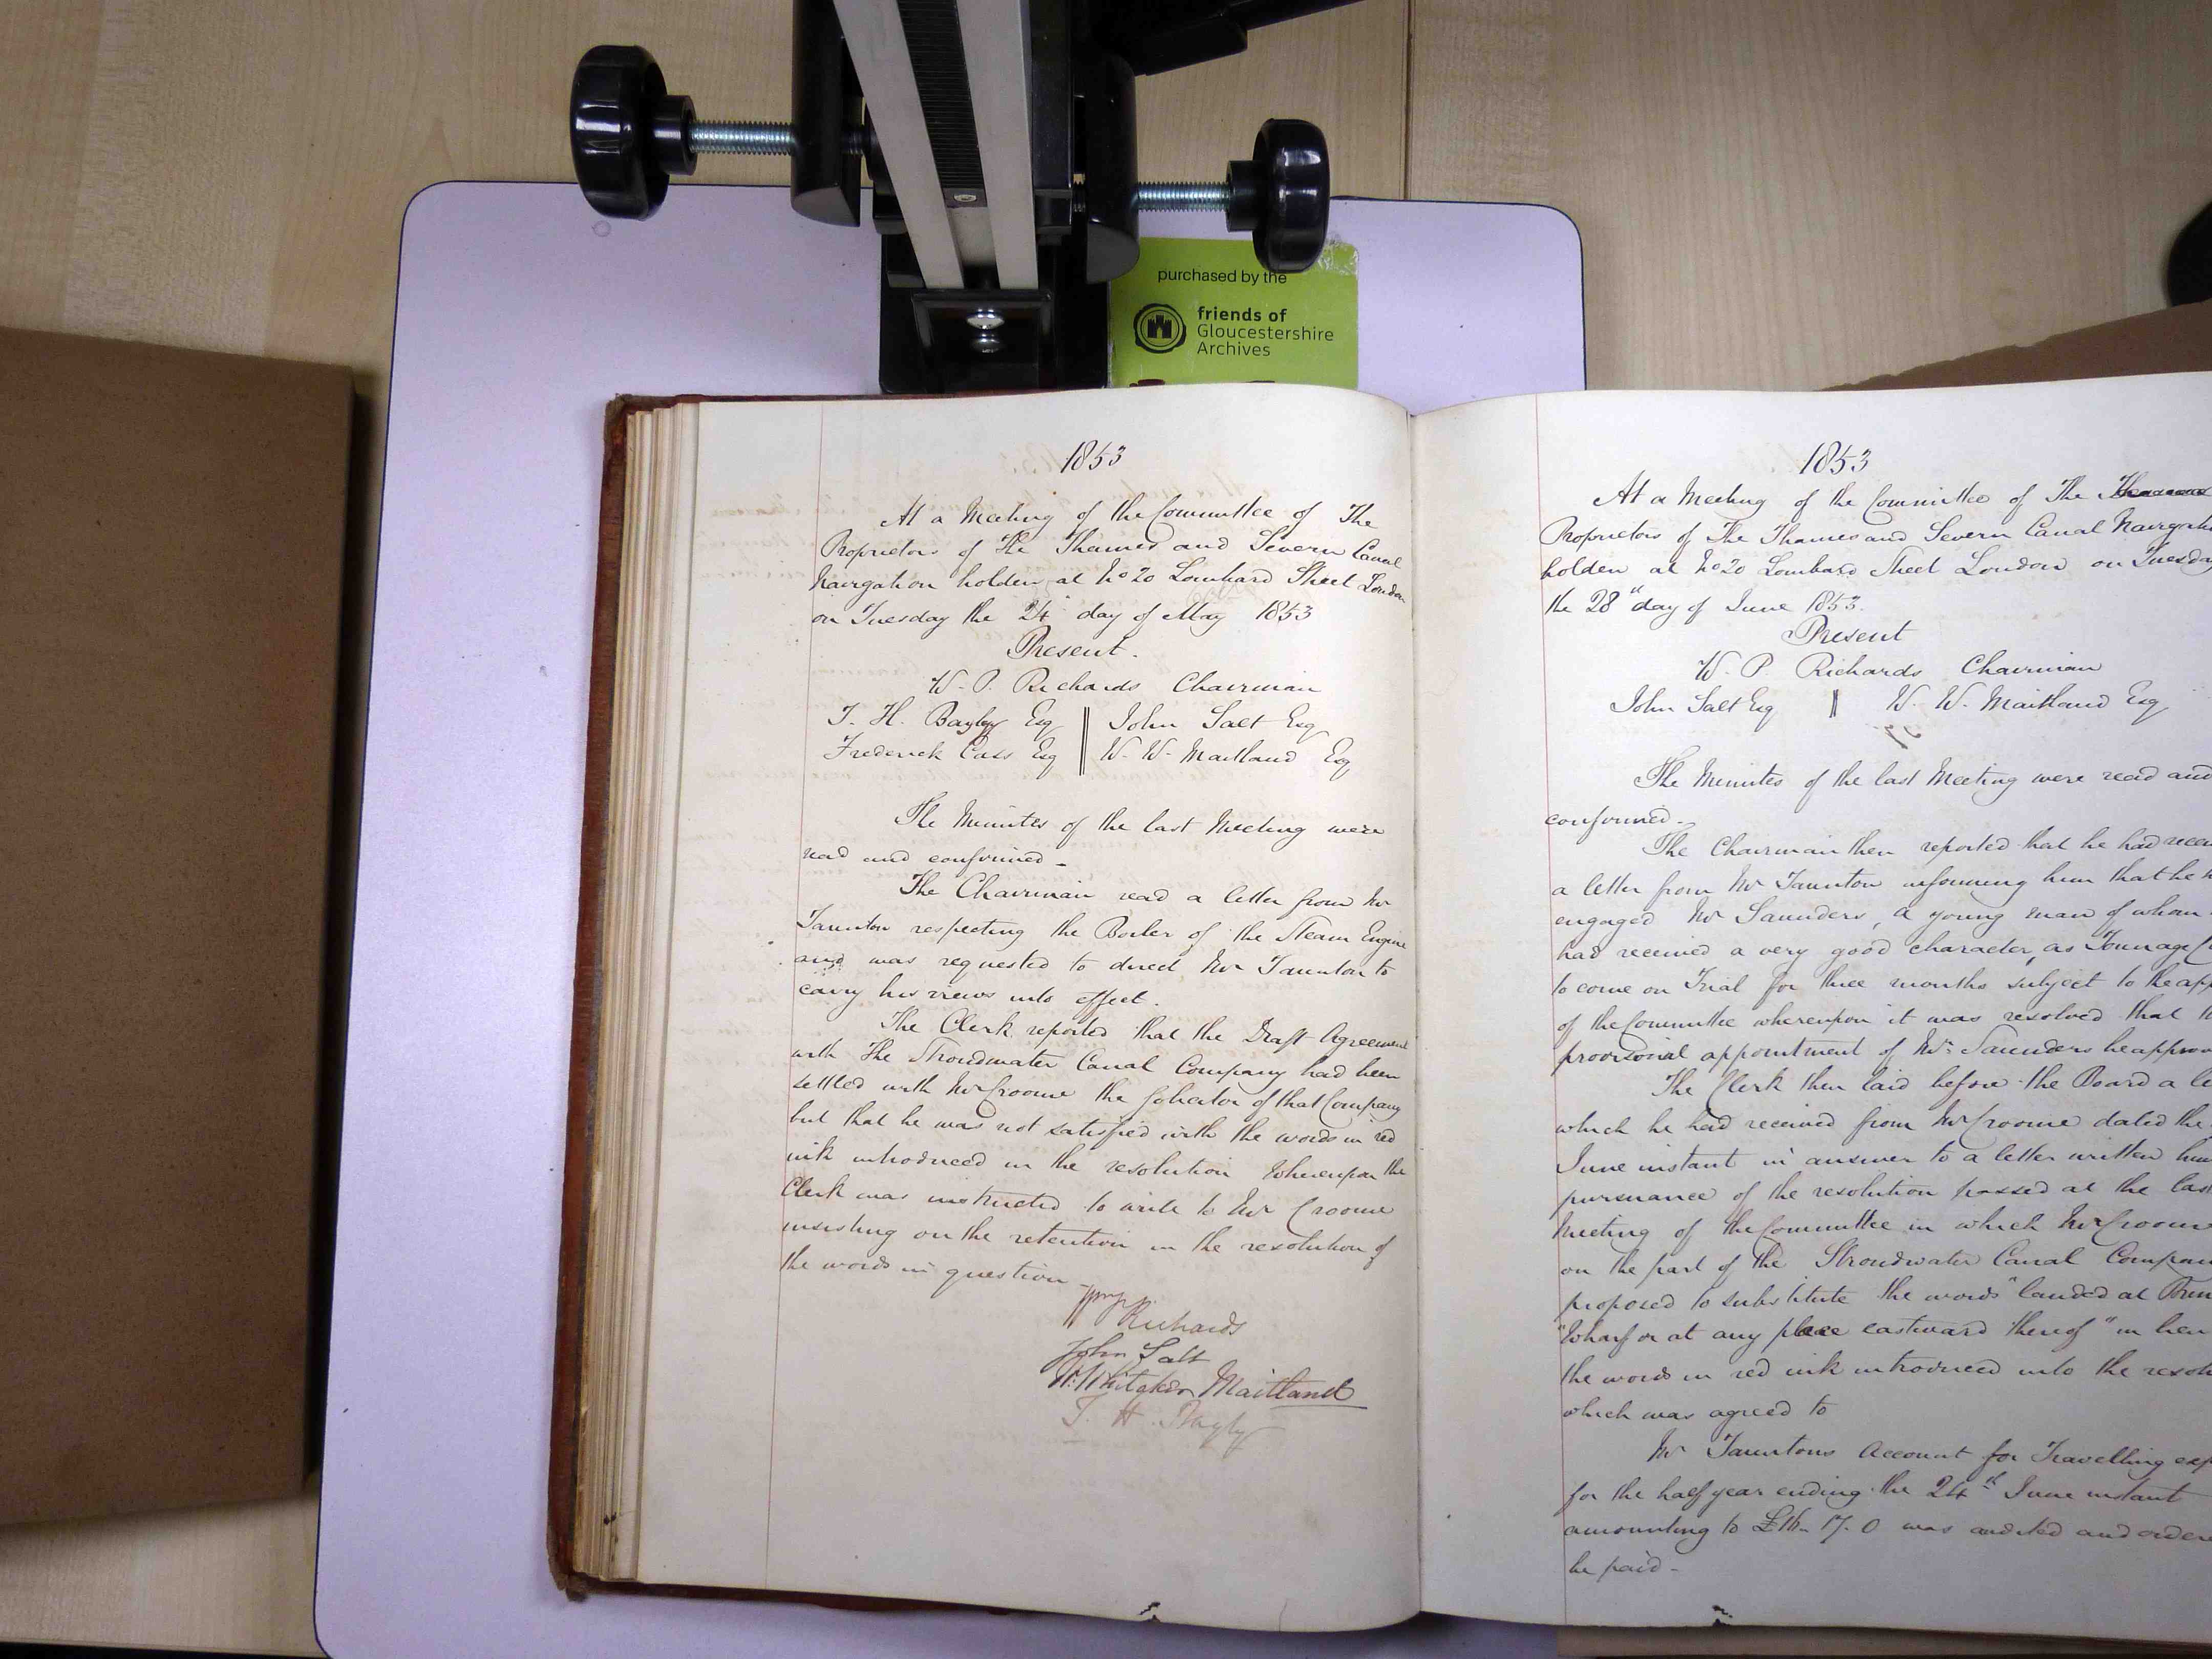 purchased by the
friends of
Gloucestershire
Archives
1853
At a Meeting of the Committee of The
Proprietors of The Thames and Severn Canal
Navigation holden at No 20 Lombard Street London
on Tuesday the 24th day of May 1853
Present.
W. P. Richards Chairman
T. H. Bayly Esq || John Salt Esq
Frederick Cass Esq || W. W. Maitland Esq
The Minutes of the last Meeting were
read and confirmed -
The Chairman read a letter from Mr
Taunton respecting the Boiler of the Steam Engine
and was requested to direct Mr Taunton to
carry his views into effect.
The Clerk reported that the Draft Agreement
with The Stroudwater Canal Company had been
settled with Mr Croome the Solicitor of that Company
but that he was not satisfied with the words in red
ink introduced in the resolution Whereupon the
Clerk was instructed to write to Mr Croome
insisting on the retention in the resolution of
the words in question -
Richards
John Salt
W. Whitaker Maitland
T. H. Bayly
1853
At a Meeting of the Committee of The
Proprietors of The Thames and Severn Canal Navigati
holden at No 20 Lombard Street London on Tuesday
the 28th day of June 1853.
Present
W. P. Richards Chairman
John Salt Esq || W. W. Maitland Esq
The Minutes of the last Meeting were read and
confirmed -
The Chairman then reported that he had recei
a letter from Mr Taunton informing him that he h
engaged Mr Saunders, a young man of whom
had received a very good character, as Tonnage C
to come on Trial for three months subject to the app
of the Committee whereupon it was resolved that th
provisional appointment of Mr Saunders be approv
The Clerk then laid before the Board a le
which he had received from Mr Croome dated the
June instant in answer to a letter written him
pursuance of the resolution passed at the last
Meeting of the Committee in which Mr Croome
on the part of the Stroudwater Canal Compan
proposed to substitute the words "landed at Brim
"Wharf or at any place eastward thereof" in lieu
the words in red ink introduced into the resol
which was agreed to
Mr Tauntons Account for Travelling exp
for the half year ending the 24th June instant
amounting to £16. 17. 0 was audited and order
be paid -